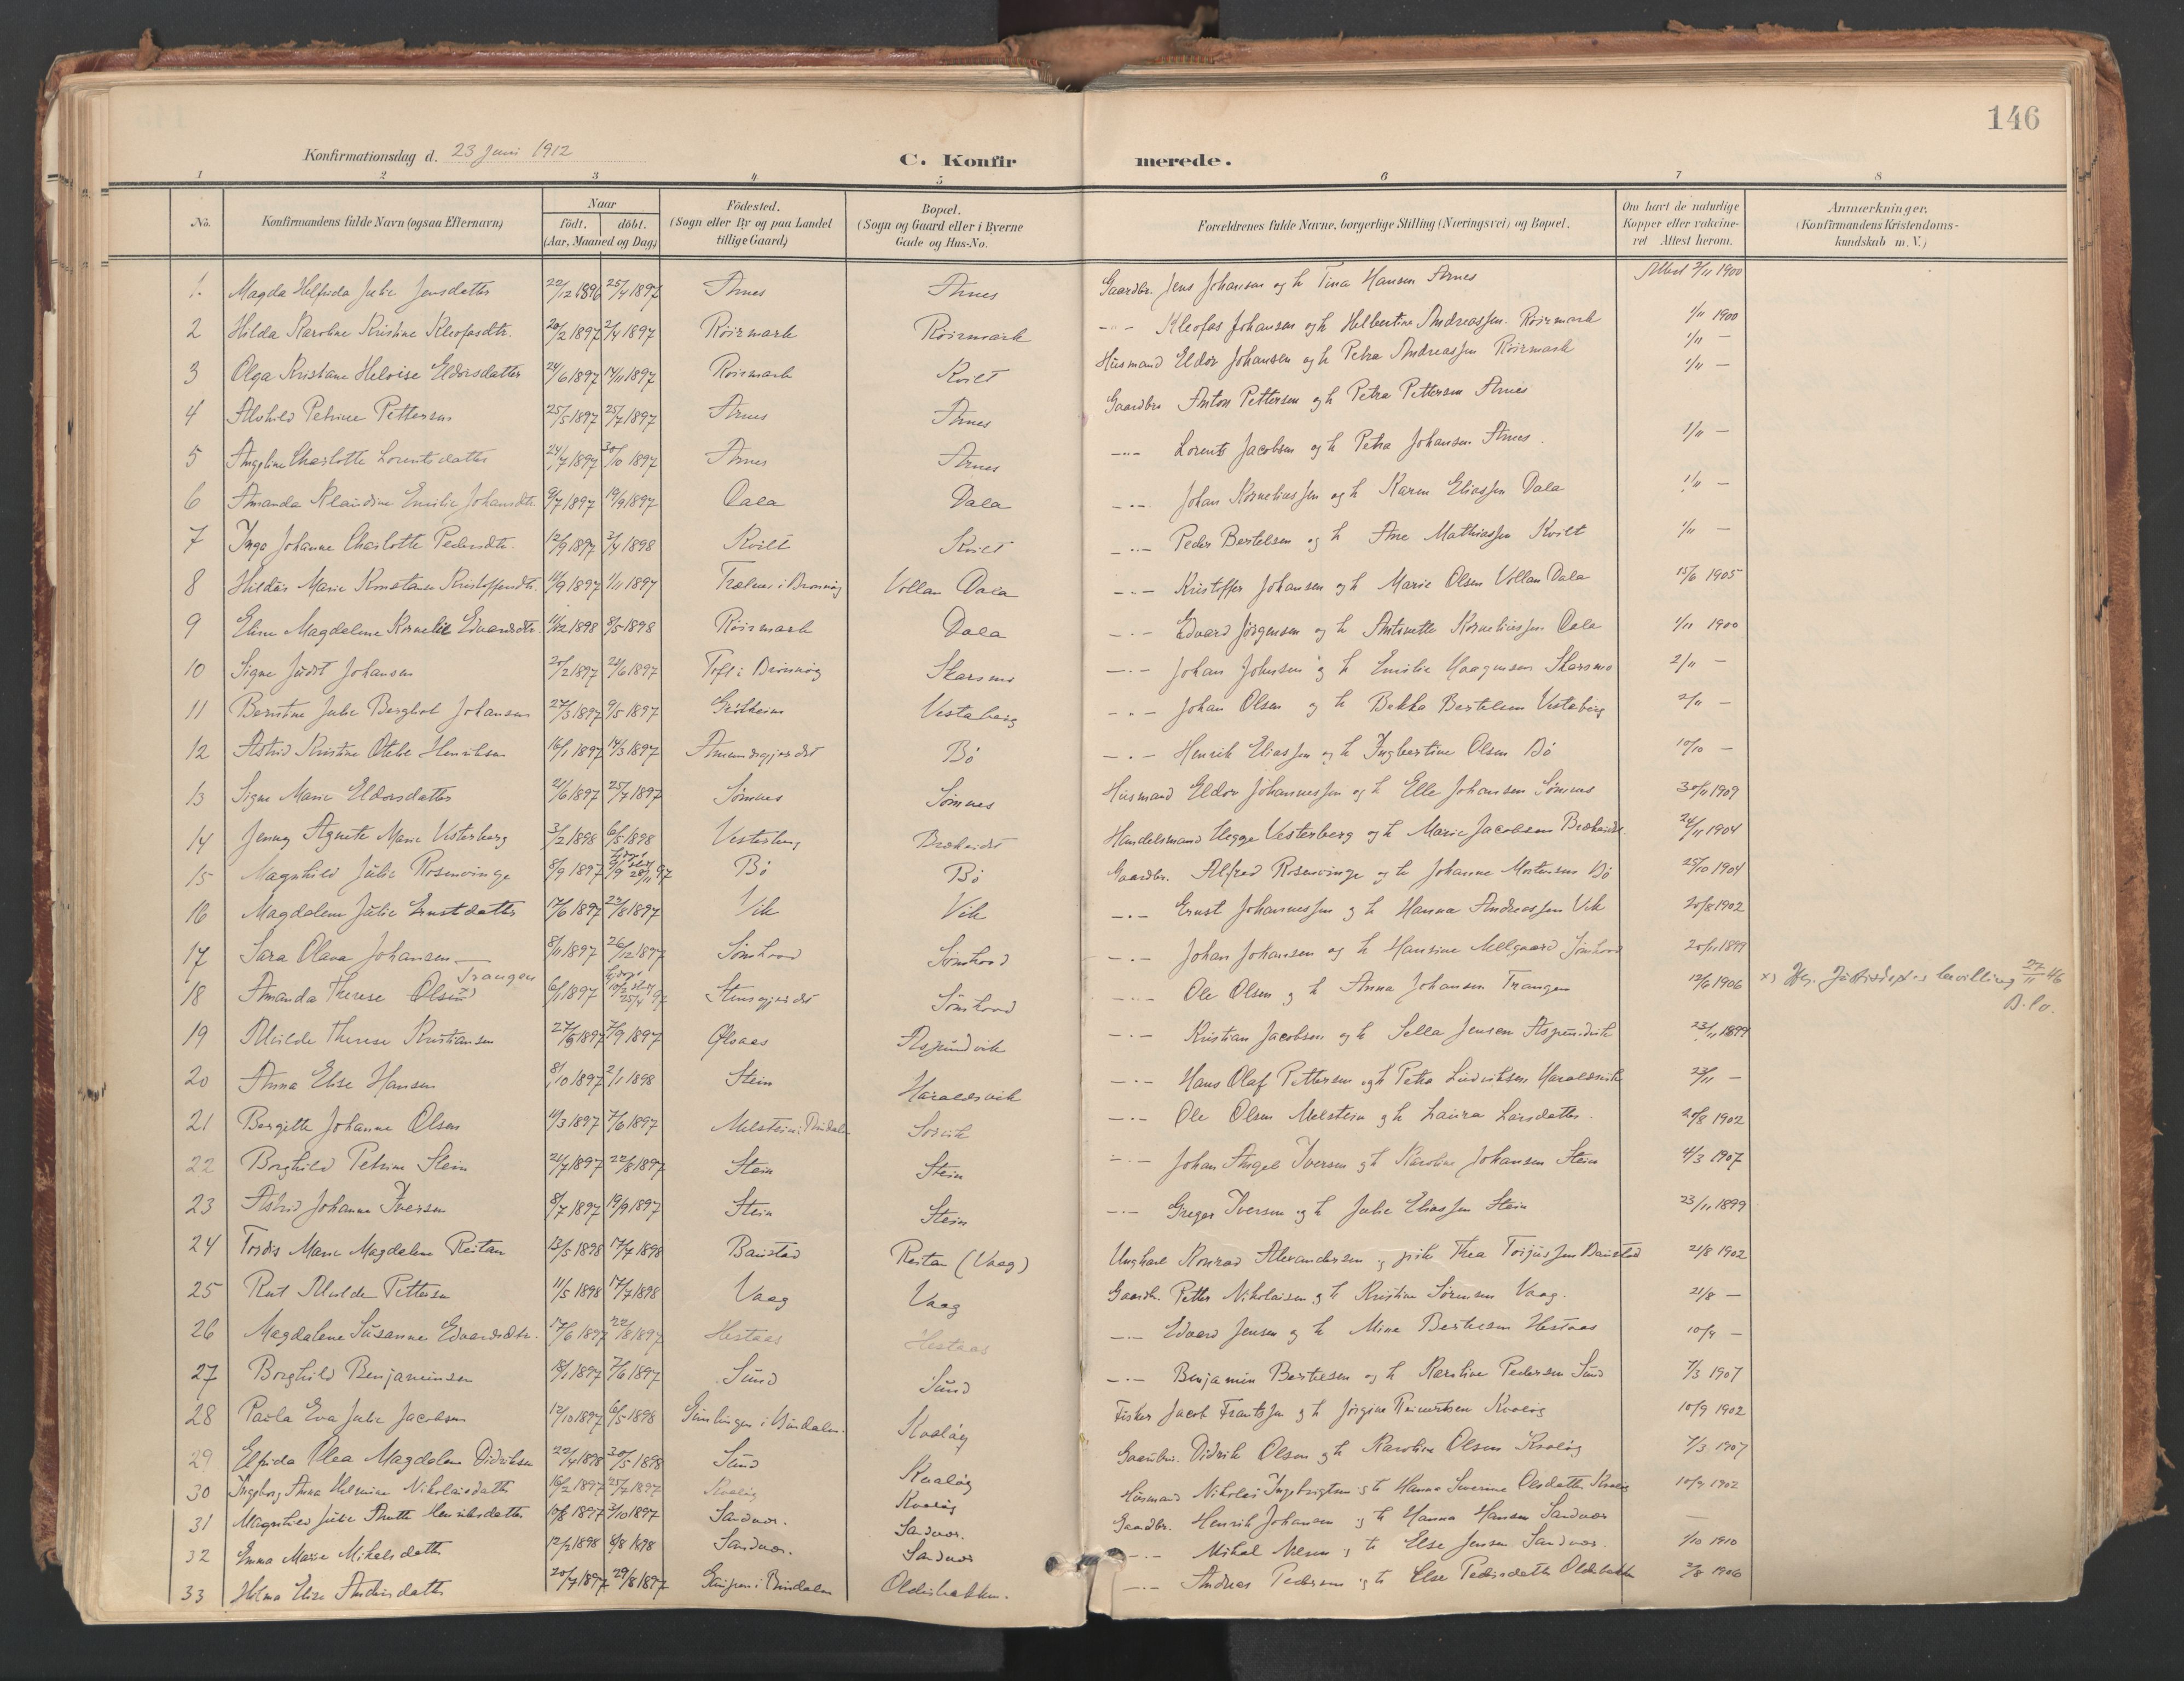 146
Konfirmationsdag d. 23 Juni 1912
C. Konfirmerede.
1 2 3 4 5 6 7 8
No. Konfirmandens fulde Navn (ogsaa Efternavn) Naar födt. döbt. (Aar, Maaned og Dag) Födested. (Sogn eller By og paa Landet tillige Gaard) Bopæl. (Sogn og Gaard eller i Byerne Gade og Hus-No. Forældrenes fulde Navne, borgerlige Stilling (Næringsvei) og Bopæl. Om havt de naturlige Kopper eller vakcineret Attest herom. Anmærkninger, (Konfirmandens Kristendomskundskab m. V.)
1. Magda Helfrida Julie Jensdatter 22/12 1896 25/4 1897 Arnes Arnes Gaardbr. Jens Johansen og h Tina Hansen Arnes 2/11 1900
2 Hilda Karoline Kristine Kleofasdtr. 20/2 1897 2/4 1897 Röirmark Röirmark -"- Kleofas Johansen og h Helbertine Andreassen Röirmark 1/11 1900
3 Olga Kristiane Heloise Eldorsdatter 24/6 1897 14/11 1897 Röirmark Kvilt Husmand Eldor Johansen og h Petra Andreassen Röirmark 1/11 —
4 Alvhild Petrine Pettersen 25/5 1897 25/7 1897 Arnes Arnes Gaardbr Anton Pettersen og h Petra Pettersen Arnes 1/11 —
5 Angeline Charlotte Lorentsdatter 24/7 1897 30/10 1897 Arnes Arnes -"- Lorents Jacobsen og h Petra Johansen Arnes. 1/11 —
6 Amanda Klaudine Emilie Johansdtr. 9/7 1897 19/9 1897 Dala Dala -"- Johan Korneliussen og h Karen Eliassen Dala 1/11 —
7 Inga Johanne Charlotte Pedersdtr. 12/9 1897 3/4 1898 Kvilt Kvilt -"- Peder Bertelsen og h Ane Mathiassen Kvilt 1/11 —
8 Hildur Marie Konstanse Kristoffersdtr. 11/9 1897 1/11 1897 Trælnes i Brönnöy Vollan Dala -"- Kristoffer Johansen og h Marie Olsen Vollan Dala 15/6 1905
9 Eline Magdalene Kornelie Edvardsdtr. 11/2 1898 8/5 1898 Röirmark Dala -"- Edvard Jörgensen og h Antonette Korneliussen Dala 1/11 1900
10 Signe Judit Johansen 20/2 1897 24/6 1897 Toft i Brönnöy Skarsmo -"- Johan Johnsen og h Emilie Haagensen Skarsmo 2/11 —
11 Berntine Julie Bergliot Johansen 27/3 1897 9/5 1897 Grötheim Vestaberg -"- Johan Olsen og h Bekka Bertelsen Vestaberg 2/11 —
12 Astrid Kristine Otelie Henriksen 16/1 1897 14/3 1897 Amundsgjerdet Bö -"- Henrik Eliassen og h Ingbertine Olsen Bö 10/10 —
13 Signe Marie Eldorsdatter 21/6 1897 25/7 1897 Sömnes Sömnes Husmand Eldor Johannessen og h Elle Johansen Sömnes 30/11 1909
14 Jenny Agnete Marie Vesterberg 3/2 1898 6/5 1898 Vesterberg Brækeidet Handelsmand Hegge Vesterberg og h Marie Jacobsen Brækeidet. 24/11 1904
15 Magnhild Julie Rosenvinge 8/9 1897 hjdøpt 9/9 stad 28/11 97 Bö Bö Gaardbr. Alfred Rosenvinge og h Johanne Mortensen Bö 25/10 1904
16 Magdalene Julie Ernstdatter 17/6 1897 22/8 1897 Vik Vik -"- Ernst Johannessen og h Hanna Andreassen Vik 20/8 1902
17 Sara Olava Johansen 8/11 1897 26/12 1897 Sömhovd Sömhovd -"- Johan Johansen og h Hansine Melgaard Sömhovd 20/11 1899
18 Amanda Therese Olsen x) Trangen 6/1 1897 hjdøpt 10/2 stad 25/4 97 Stensgjerdet Sömhovd -"- Ole Olsen og h Anna Johansen Trangen 12/6 1906 x) Iflg. Justisdept.s bevilling 27/11 46
19 Alvilde Therese Kristiansen 27/5 1897 7/9 1897 Olsaas Aspundvik -"- Kristian Jacobsen og h Sella Jensen Aspundvik 23/11 1899
20 Anna Elise Hansen 8/10 1897 2/1 1898 Stein Haraldsvik -"- Hans Olaf Pettersen og h Petra Ludviksen Haraldsvik 23/11 —
21 Bergitte Johanne Olsen 11/3 1897 7/6 1897 Melstein i Bindalen Sörvik -"- Ole Olsen Melstein og h Laura Larsdatter. 20/8 1902
22 Borghild Petrine Stein 21/7 1897 22/8 1897 Stein Stein -"- Johan Angel Iversen og h Karoline Johansen Stein 4/3 1907
23 Astrid Johanne Iversen 8/7 1897 19/9 1897 Stein Stein -"- Greger Iversen og h Julie Eliassen Stein 23/11 1899
24 Tordis Marie Magdalene Reitan 13/5 1898 17/7 1898 Baustad Reitan (Vaag) Ungkarl Konrad Alexandersen og pike Thea Torgussen Baustad 21/8 1902
25 Rut Alvilde Pettersen 11/5 1898 17/7 1898 Vaag Vaag Gaardbr. Petter Nikolaisen og h Kristine Sörensen Vaag. 21/8 —
26 Magdalene Susanne Edvardsdtr. 17/6 1897 22/8 1897 Hestaas Hestaas -"- Edvard Jensen og h Mina Bertelsen Hestaas 10/9 —
27 Borghild Benjaminsen 18/1 1897 7/6 1897 Sund Sund -"- Benjamin Bertelsen og h Karoline Pedersen Sund 7/3 1907
28 Paula Eva Julie Jacobsen 12/10 1897 6/5 1898 i Bindalen. Kvalöy Fisker Jacob Frantssen og h Jörgine Reinertsen Kvalöy 10/9 1902
29 Elfrida Olea Magdalene Didriksen 22/4 1898 30/5 1898 Sund Kvalöy Gaardbr. Didrik Olsen og h Karoline Olsen Kvalöy 7/3 1907
30 Ingeborg Anna Helmine Nikolaisdatter 16/2 1897 25/7 1897 Kvalöy Kvalöy Husmand Nikolai Ingebrigtsen og h Hanna Severine Olsdatter Kvalöy 10/9 1902
31 Magnhild Julie Anette Henriksdatter 10/8 1897 3/10 1897 Sandvær. Sandvær. Gaardbr. Henrik Johansen og h Hanna Hansen Sandvær —
32 Emma Marie Mikalsdatter 12/2 1898 8/8 1898 Sandvær. Sandvær -"- Mikal Nelsen og h Else Jensen Sandvær. 1/10 1910
33 Holma Elise Andersdatter 20/7 1897 29/8 1897 i Bindalen Oldesbakken. -"- Andreas Pedersen og h Else Pedersdatter Oldesbakken 2/8 1906